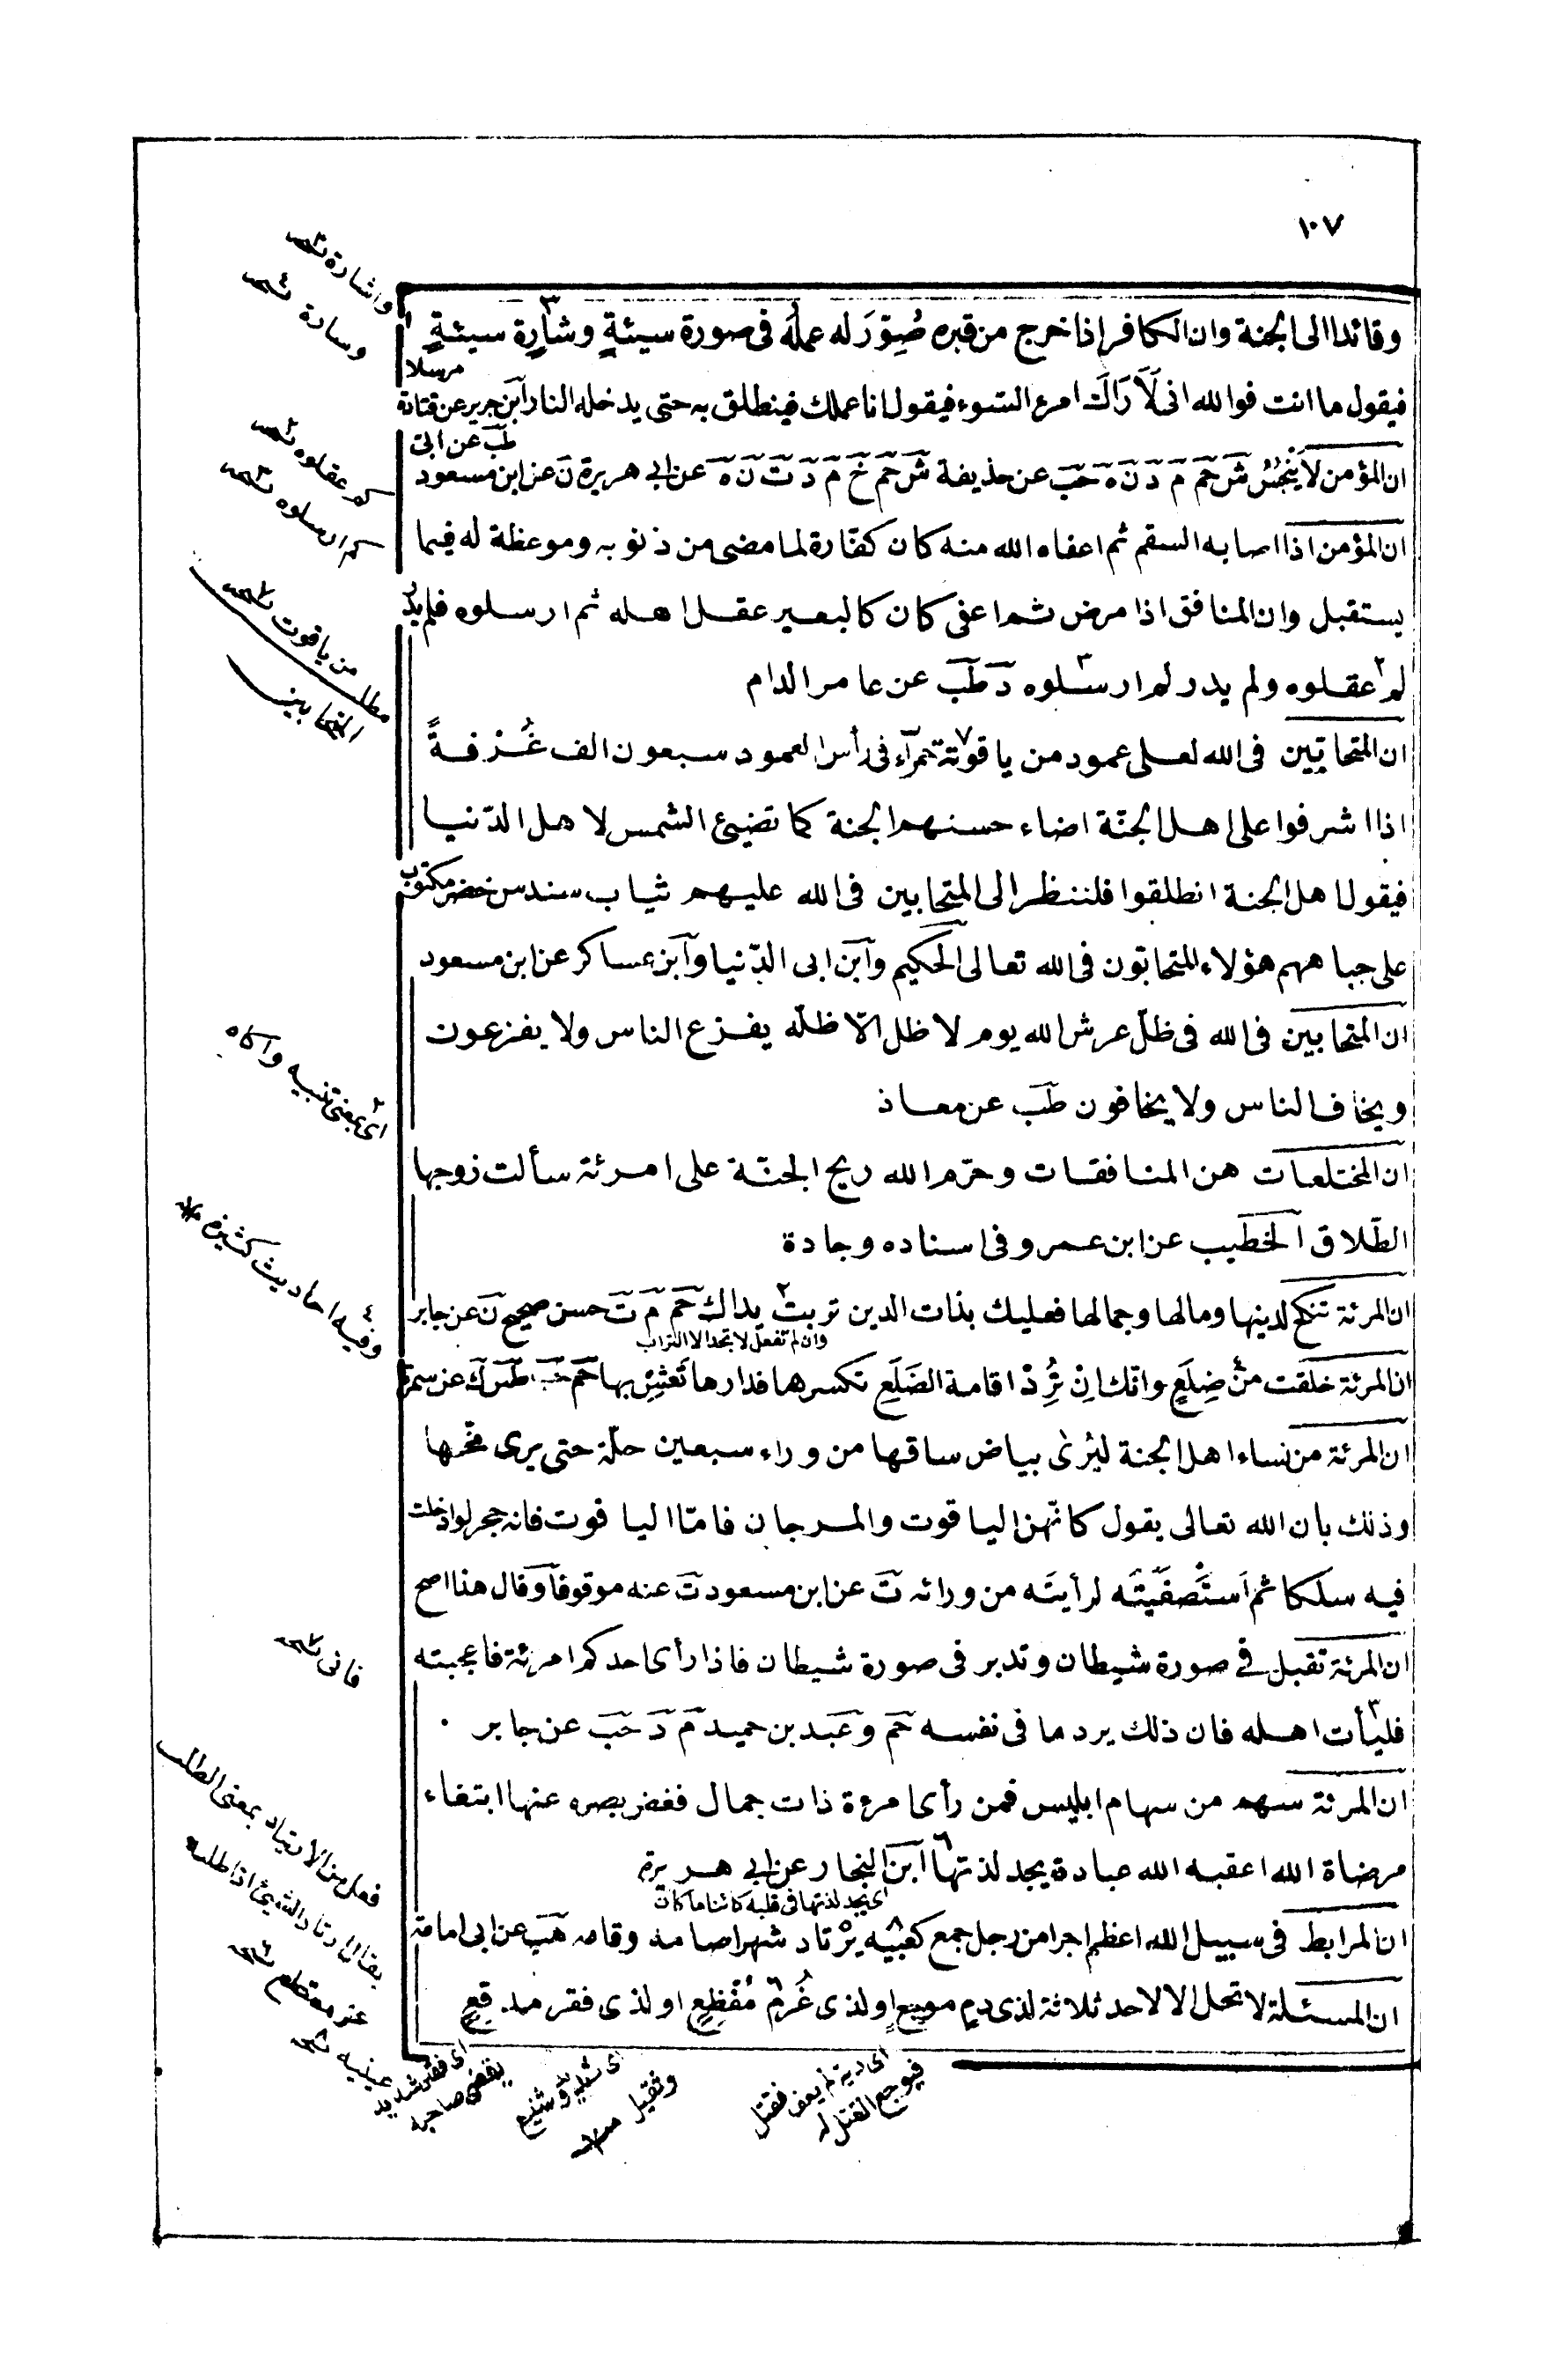 ١٠٧
وقائدا الى الجنة وان الكافر اذا خرج من قبره صُوِّرَ له عمله فى صورة سيئةٍ وشارة سيئةٍ
فيقول ما انت فوالله انى لَاَرَاكَ امرء السّوء فيقول انا عملك فينطلق به حتى يدخله النار ابن جرير عن قتادة
مرسلا
ان المؤمن لا يَنْجُسُ شَ حَمَ مَ دَ نَ هَ حَبَ عن حذيفة شَ حَمَ خَ مَ دَ تَ نَ هَ عن ابى هريرة نَ عن ابن مسعود
طَبَ عن ابى
ان المؤمن اذا اصابه السقم ثم اعفاه الله منه كان كفّارة لما مضى من ذنوبه وموعظة له فيما
يستقبل وان المنافق اذا مرض ثم اعفى كان كالبعير عقله اهله ثم ارسلوه فلم يدر
لم عقلوه ولم يدر لم ارسلوه دَ طَبَ عن عامر الرام
ان المتحابّين فى الله لعلى عمود من ياقوتة حمرآء فى رأس العمود سبعون الف غُرْفةً
اذا اشرفوا على اهل الجنّة اضاء حسنهم الجنة كما تضيئ الشمس لاهل الدّنيا
فيقول اهل الجنة انطلقوا فلننظر الى المتحابين فى الله عليهم ثياب سندس خضر مكتوب
على جباههم هؤلاء المتحابّون فى الله تعالى الحكيم وابن ابى الدّنيا وابن عساكر عن ابن مسعود
ان المتحابين فى الله فى ظلّ عرش الله يوم لا ظل الّا ظلّه يفزع الناس ولا يفزعون
ويخاف الناس ولا يخافون طَبَ عن معاذ
ان المختلعات هن المنافقات وحرّم الله ريح الجنّة على امرئة سألت زوجها
الطّلاق الخطيب عن ابن عمر وفى اسناده وجادة
ان المرئة تنكح لدينها ومالها وجمالها فعليك بذات الدين تربت يداك حَمَ مَ تَ حسن صحيح نَ عن جابر
وان لم تفعل لا تجد الا التراب
ان المرئة خلقت من ضِلَعٍ وانّك اِنْ تُرِدْ اقامة الضَلَعِ تكسرها فدارها تَعِشْ بها حَمَ حَبَ طَبَ كَ عن سمرة
ان المرئة من نساء اهل الجنة ليُرٰى بياض ساقها من وراء سبعين حلّة حتى يرى مخّها
وذلك بان الله تعالى يقول كانّهن الياقوت والمرجان فامّا الياقوت فانه حجر لو ادخلت
فيه سلكا ثم اَستَصفَيتَه لرأيتَه من ورائه تَ عن ابن مسعود تَ عنه موقوفا وقال هذا اصح
ان المرئة تقبل فى صورة شيطان وتدبر فى صورة شيطان فاذا رأى احدكم امرئة فاعجبته
فليأت اهله فان ذلك يرد ما فى نفسه حَمَ وعَبد بن حميد مَ دَ حَبَ عن جابر
ان المرئة سهم من سهام ابليس فمن رأى امرءة ذات جمال فغض بصره عنها ابتغاء
مرضاة الله اعقبه الله عبادة يجد لذتها ابن النجار عن ابى هريرة
اى يجد لذتها فى قلبه كائنا ما كان
ان المرابط فى سبيل الله اعظم اجرا من رجل جمع كعبيه يرْتاد شهرا صامه وقامه هَبَ عن ابى امامة
ان المسئلة لا تحل الا لاحد ثلاثة لذى دم موجع او لذى غُرمٍ مُفْظِعٍ او لذى فقر مدقِعٍ
واشارة نسخه
وسارة نسخه
كم عقلوه نسخه
كم ارسلوه نسخه
من ياقوت نسخه
مطلب
المتحابين
اى بمعنى تنبيه وآكاه
وفيه احاديث كثيرة
فانى نسخه
فعل من الأرتياد بمعنى الطلب
يقال ارتاد الشيئ اذا طلبه
غرم مقطع نسخه
عينيه نسخه
اى دية لم يعف فقتل
فيوجع القتل له
اى شديد وشنيع
وثقيل
اى فقر شديد
يفضى صاحبه